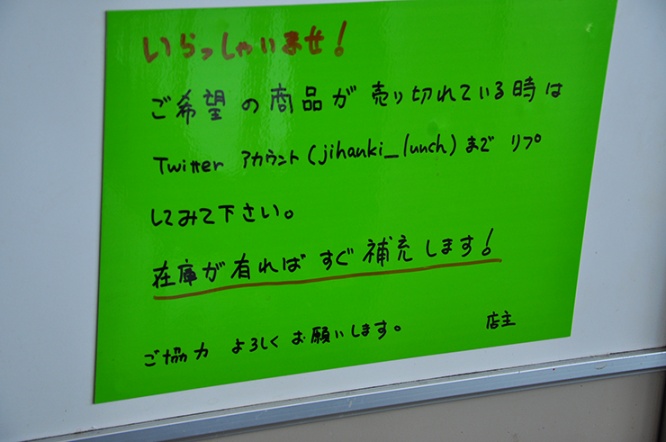 いらっしゃいませ!
ご希望の商品が売り切れている時は
Twitter アカウント(jihanki_lunch)まで リプ
してみて下さい。
在庫が有ればすぐ補充します!
ご協力 よろしくお願いします。 店主